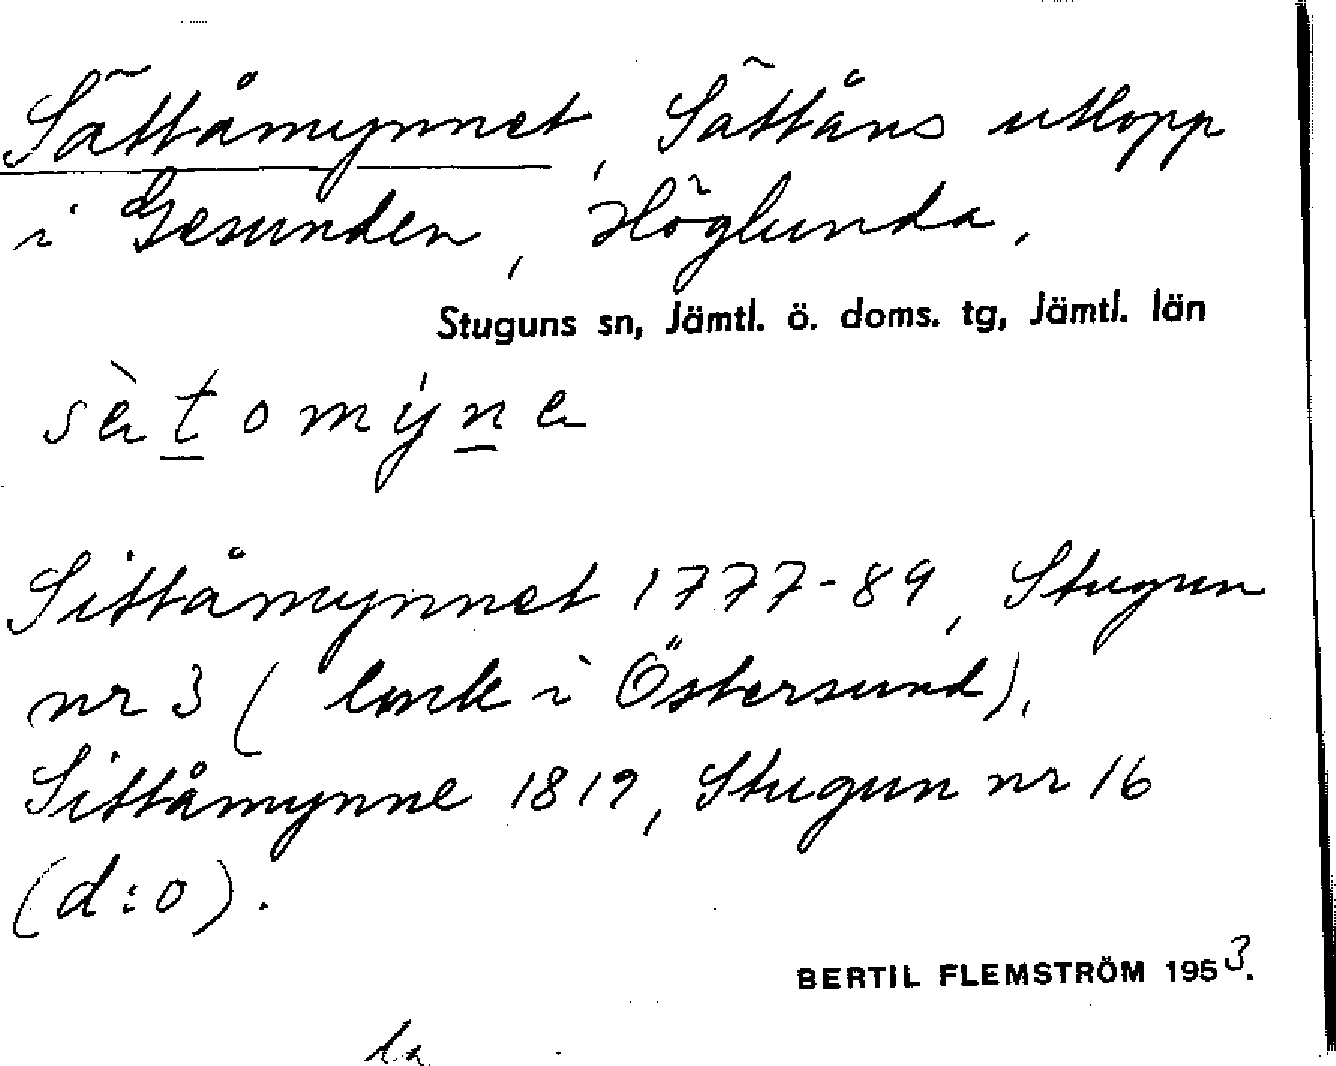 Sättåmynnet, Sättåns utlopp
i Gesunden, Höglunda,
Stuguns sn, Jämtl. ö. doms. tg, Jämtl. län
Sittåmynnet 1777-89, Stugun
nr 3 (lmk i Östersund),
Sittåmynne 1819, Stugun nr 16
(d:o).
BERTIL FLEMSTRÖM 1953.